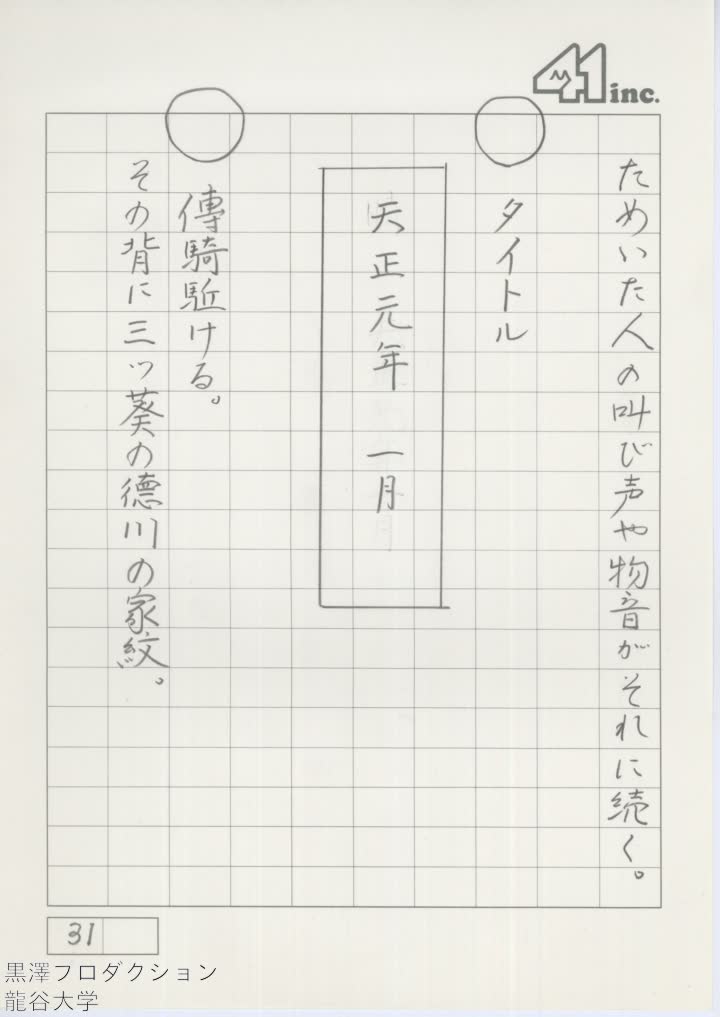 41 inc.
ためいた人の叫び声や物音がそれに続く。
タイトル
天正元年 一月
傳騎駈ける。
その背に三ツ葵の徳川の家紋。
31
黒澤フロダクション
龍谷大学